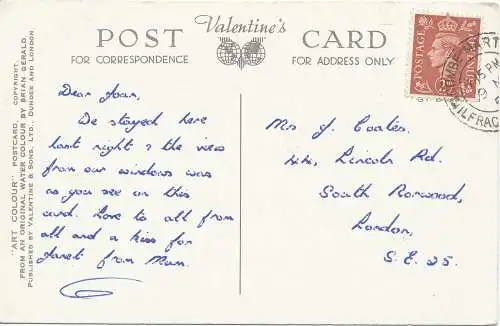 POST
FOR CORRESPONDENCE
Valentine's
CARD
FOR ADDRESS ONLY
"ART COLOUR" POSTCARD COPYRIGHT.
FROM AN ORIGINAL WATER COLOUR BY BRIAN GERALD.
PUBLISHED BY VALENTINE & SONS, LTD., DUNDEE AND LONDON
Dear Joan,
We stayed here
last night & the view
from our windows was
as you see on this
card. Love to all from
all and a kiss for
Janet from Mum.
Mrs J. Coates.
44, Lincoln Rd.
South Norwood,
London,
S.E. 25.
POSTAGE
ILFRAC